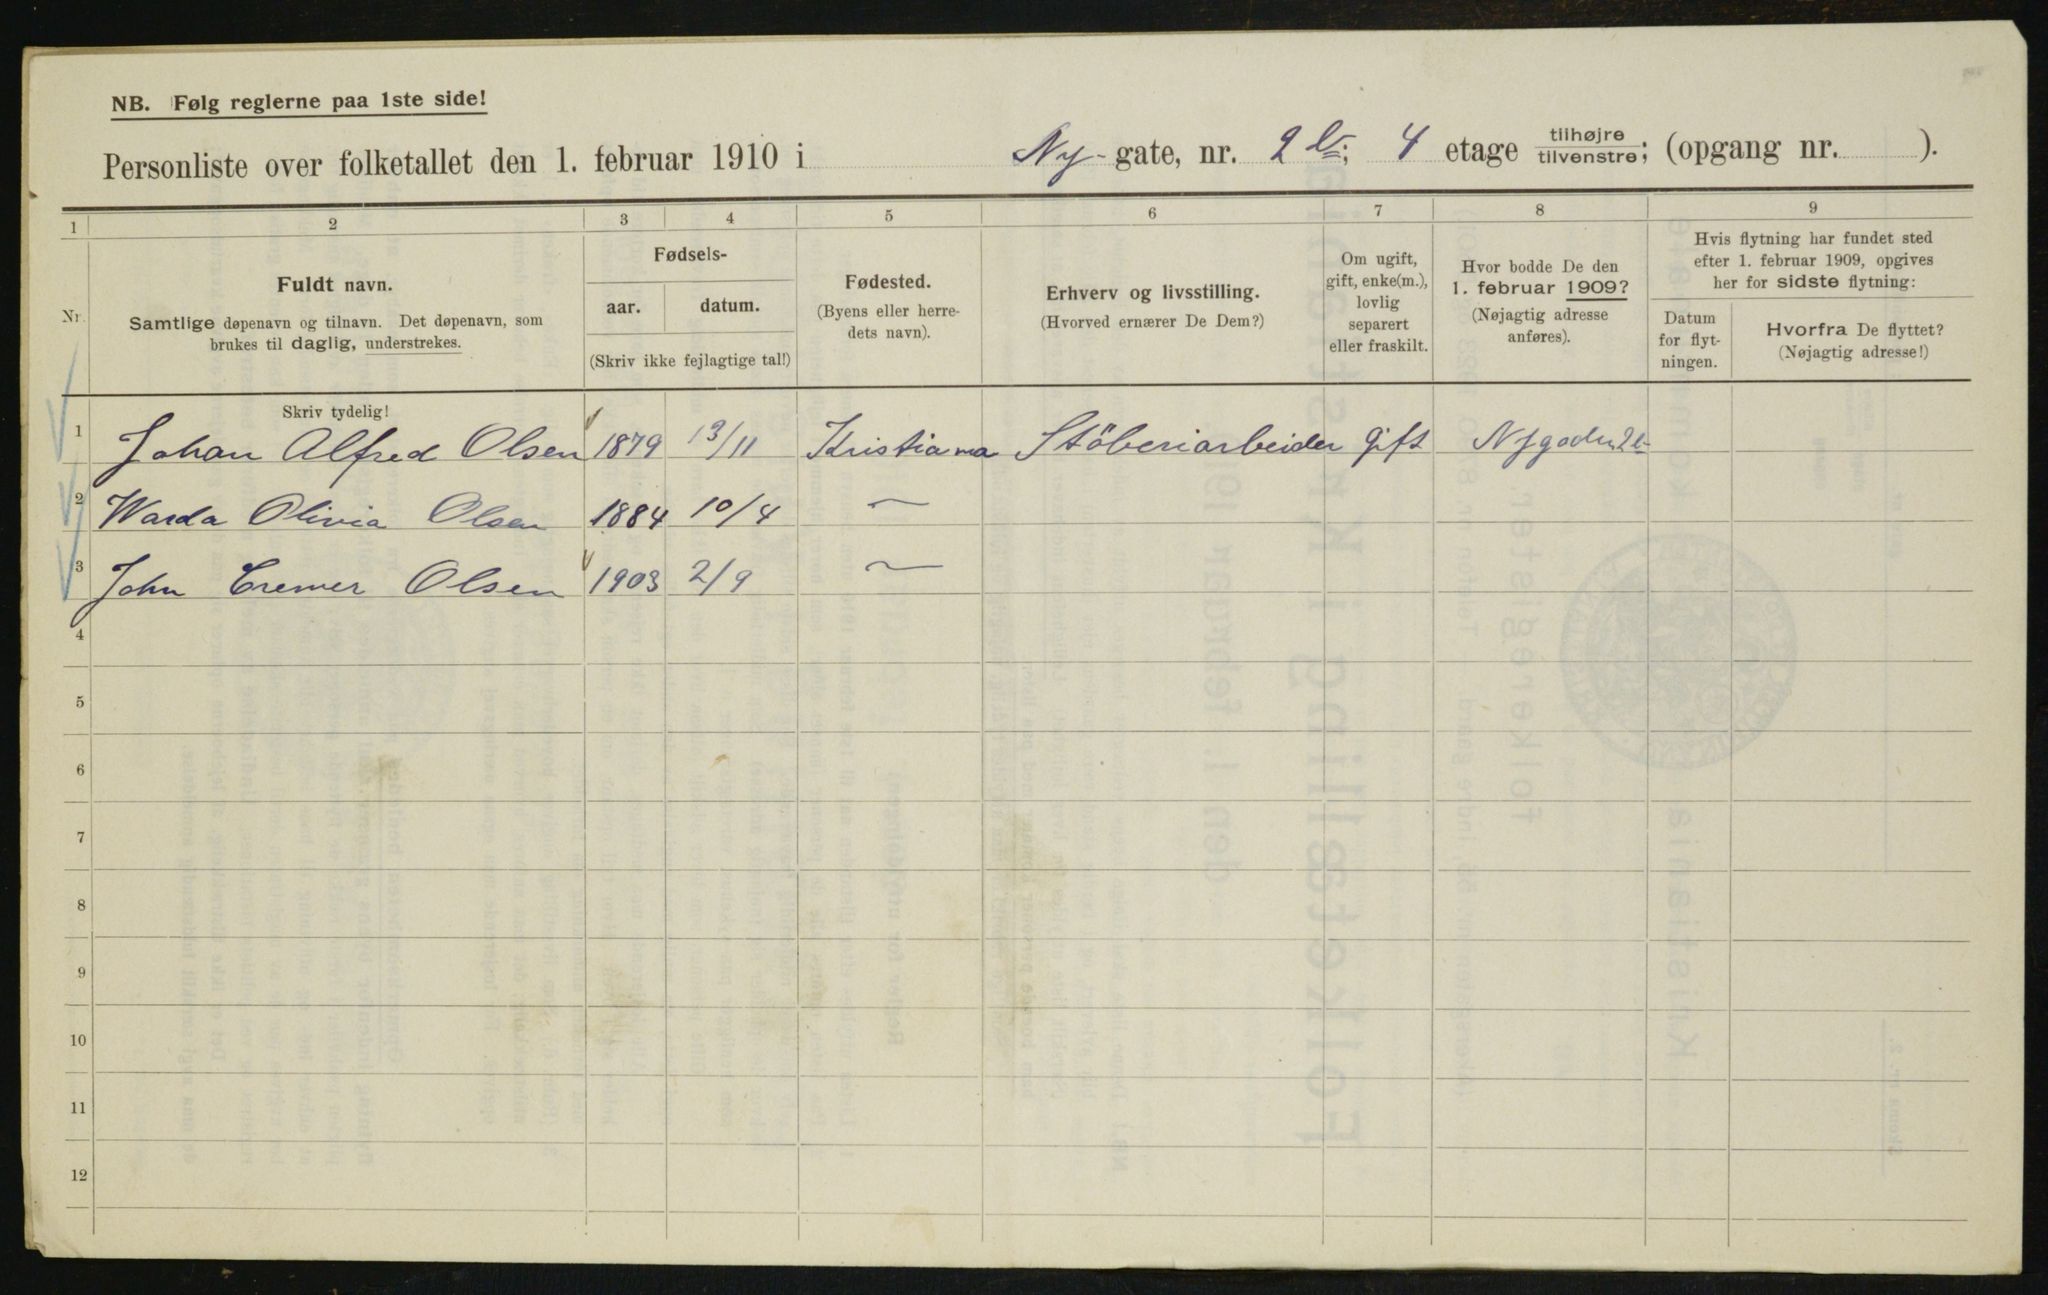 NB. Følg reglerne paa 1ste side!
Personliste over folketallet den 1. februar 1910 i Ny- gate, nr. 2 b; 4 etage tilhøjre/tilvenstre; (opgang nr. ).
1 2 3 4 5 6 7 8 9
Nr.
Fuldt navn.
Samtlige døpenavn og tilnavn. Det døpenavn, som
brukes til daglig, understrekes.
Fødsels-
aar.
datum.
(Skriv ikke fejlagtige tal!)
Fødested.
(Byens eller herre-
dets navn).
Erhverv og livsstilling.
(Hvorved ernærer De Dem?)
Om ugift,
gift, enke(m.),
lovlig
separert
eller fraskilt.
Hvor bodde De den
1. februar 1909?
(Nøjagtig adresse
anføres).
Hvis flytning har fundet sted
efter 1. februar 1909, opgives
her for sidste flytning:
Datum
for flyt-
ningen.
Hvorfra De flyttet?
(Nøjagtig adresse!)
Skriv tydelig!
1 Johan Alfred Olsen 1879 13/11 Kristiania Stöberiarbeider Gift Nygaden 2b
2 Warda Olivia Olsen 1884 10/4 —
3 John Cremer Olsen 1903 2/9 —
4
5
6
7
8
9
10
11
12